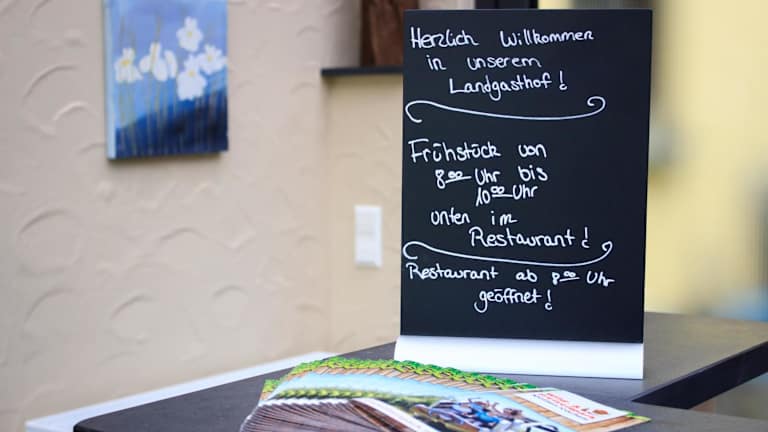 Herzlich Willkommen
in unserem
Landgasthof!
Frühstück von
8⁰⁰ Uhr bis
10⁰⁰ Uhr
unten im
Restaurant!
Restaurant ab 8⁰⁰ Uhr
geöffnet!